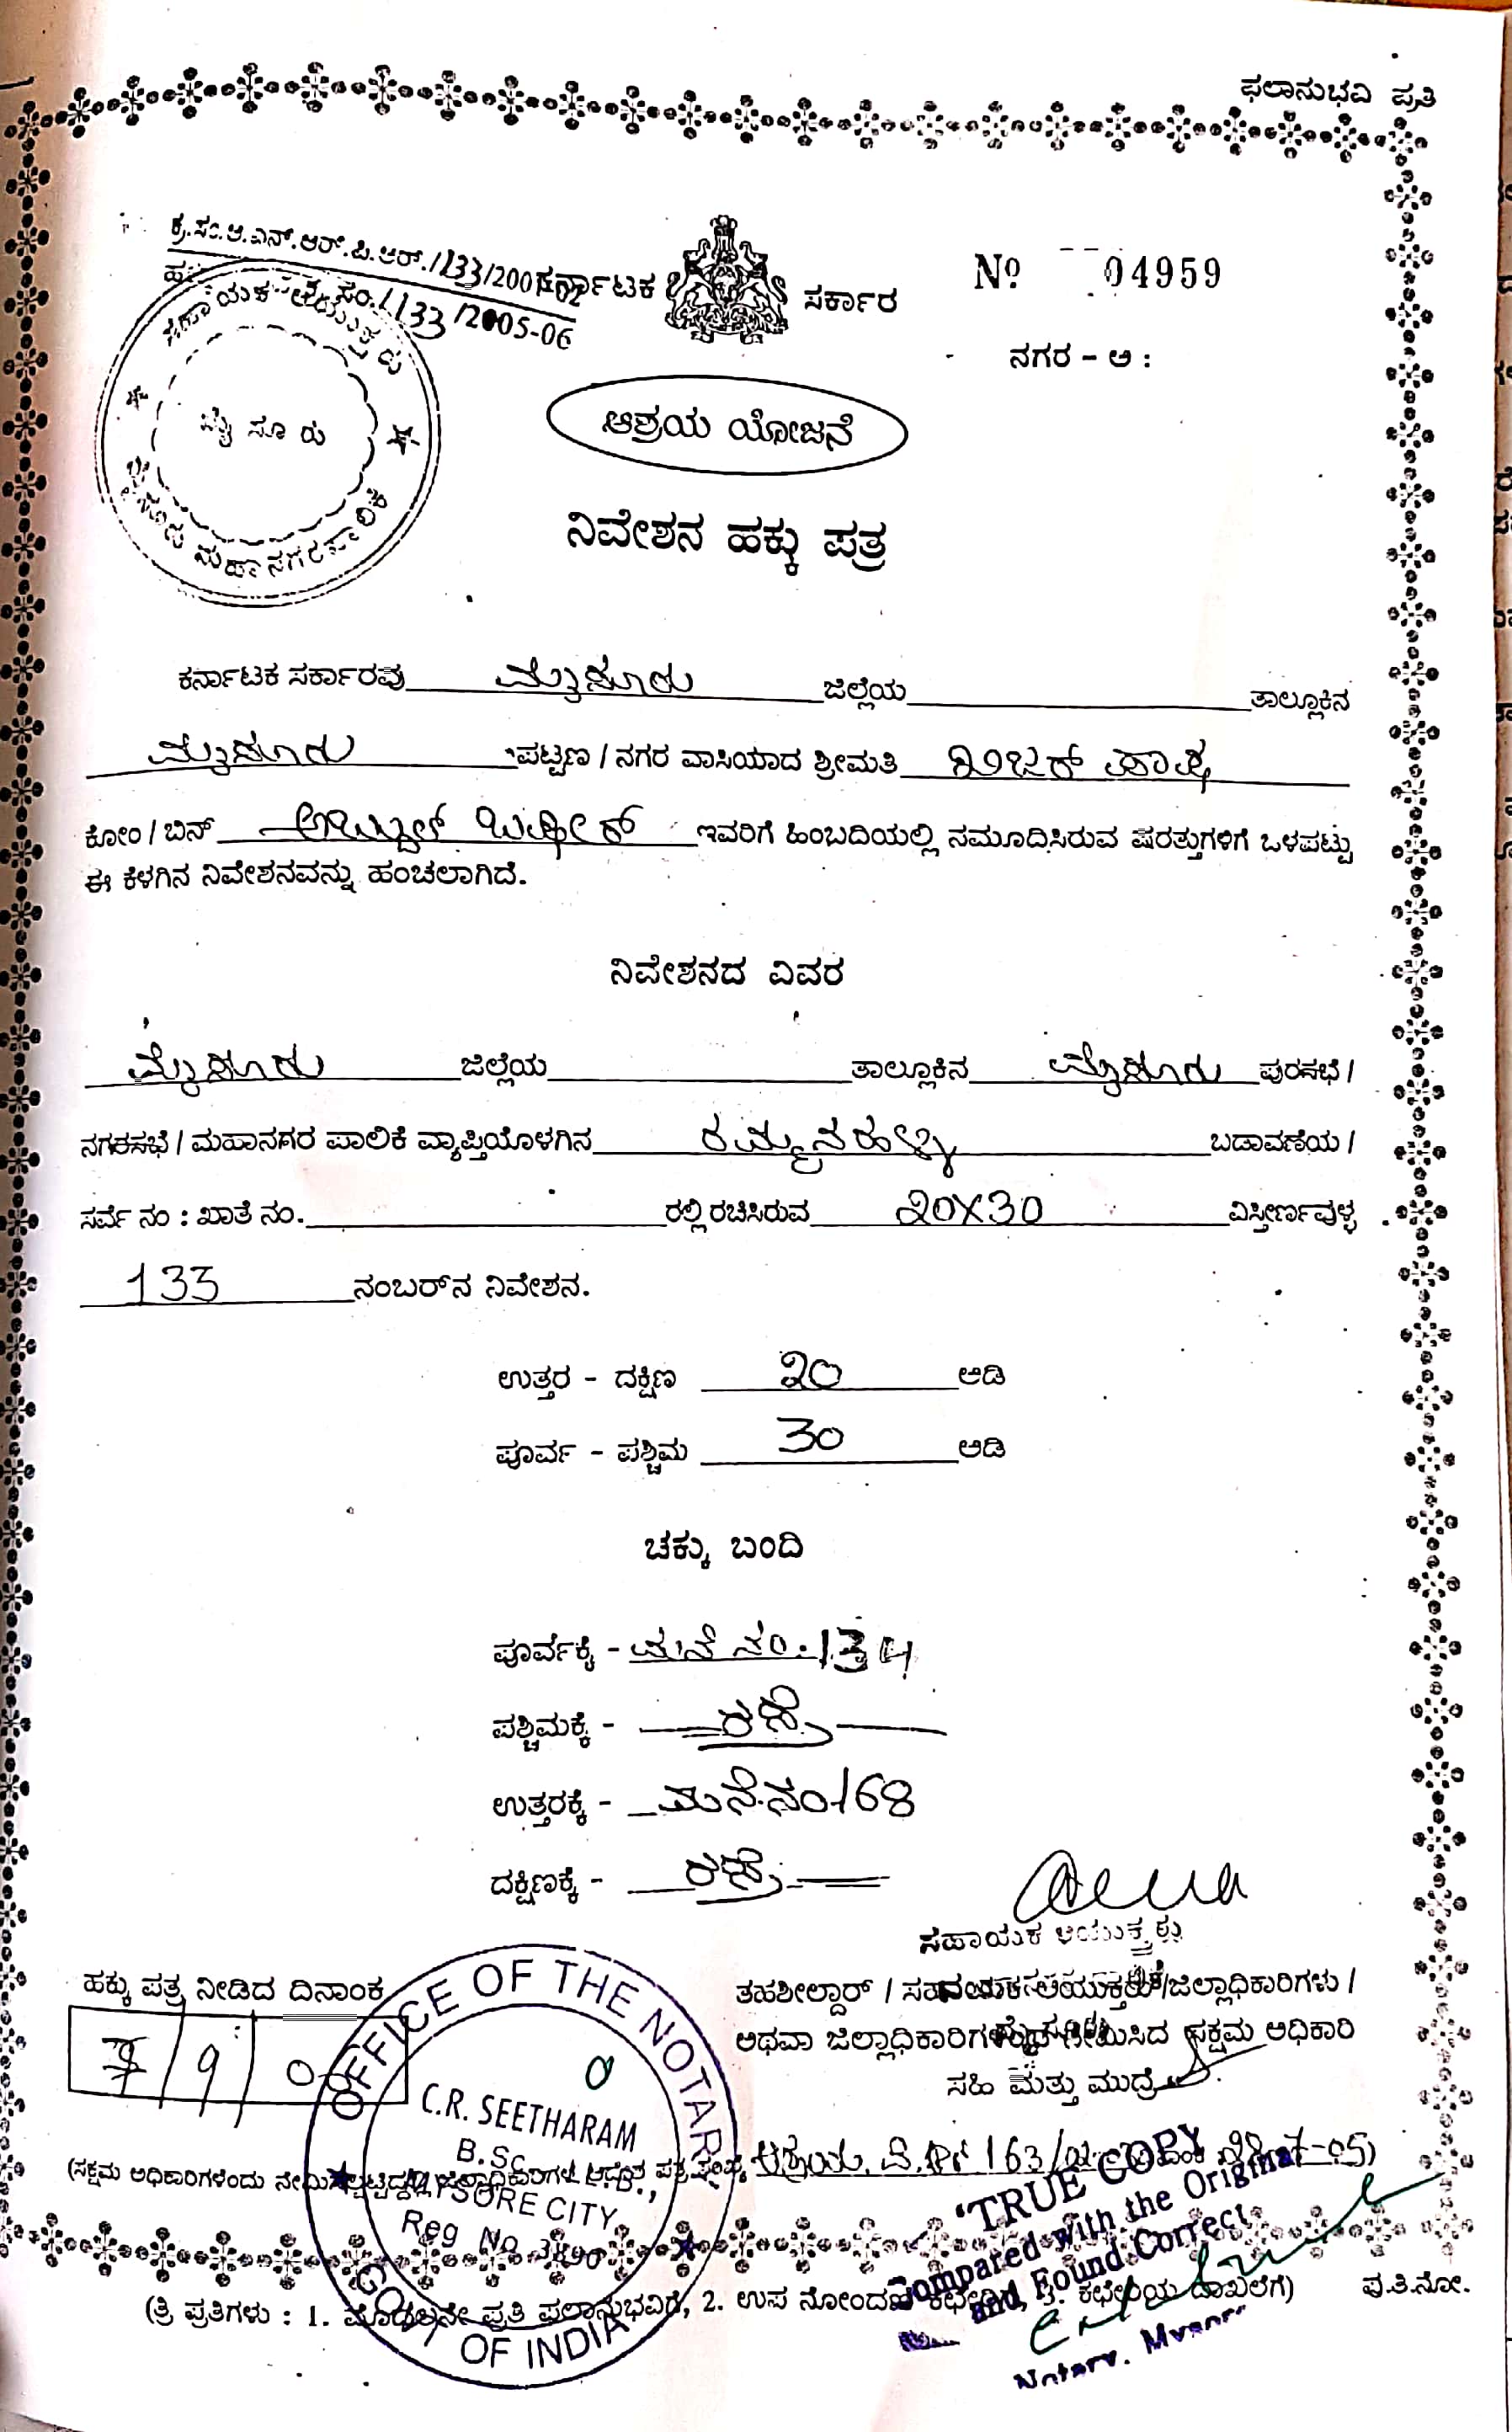 ಫಲಾನುಭವಿ ಪ್ರತಿ
ಕ್ರ.ಸಂ.ಆ.ಎನ್.ಆರ್.ಪಿ.ಆರ್./133/2001-02
ಹ ಪ ಸಂ./133/2005-06
ಕರ್ನಾಟಕ ಸರ್ಕಾರ
Nº 04959
ನಗರ - ಅ :
ಸಹಾಯಕ ಆಯುಕ್ತರು
ಮೈಸೂರು
ಮೈಸೂರು ಮಹಾನಗರಪಾಲಿಕೆ
ಆಶ್ರಯ ಯೋಜನೆ
ನಿವೇಶನ ಹಕ್ಕು ಪತ್ರ
ಕರ್ನಾಟಕ ಸರ್ಕಾರವು ಮೈಸೂರು ಜಿಲ್ಲೆಯ ತಾಲ್ಲೂಕಿನ
ಮೈಸೂರು ಪಟ್ಟಣ / ನಗರ ವಾಸಿಯಾದ ಶ್ರೀಮತಿ
ಕೋಂ / ಬಿನ್ ಇವರಿಗೆ ಹಿಂಬದಿಯಲ್ಲಿ ನಮೂದಿಸಿರುವ ಷರತ್ತುಗಳಿಗೆ ಒಳಪಟ್ಟು
ಈ ಕೆಳಗಿನ ನಿವೇಶನವನ್ನು ಹಂಚಲಾಗಿದೆ.
ನಿವೇಶನದ ವಿವರ
ಮೈಸೂರು ಜಿಲ್ಲೆಯ ತಾಲ್ಲೂಕಿನ ಮೈಸೂರು ಪುರಸಭೆ /
ನಗರಸಭೆ / ಮಹಾನಗರ ಪಾಲಿಕೆ ವ್ಯಾಪ್ತಿಯೊಳಗಿನ ರಮ್ಮನಹಳ್ಳಿ ಬಡಾವಣೆಯ /
ಸರ್ವೆ ನಂ : ಖಾತೆ ನಂ. ರಲ್ಲಿ ರಚಿಸಿರುವ 20X30 ವಿಸ್ತೀರ್ಣವುಳ್ಳ
133 ನಂಬರ್‌ನ ನಿವೇಶನ.
ಉತ್ತರ - ದಕ್ಷಿಣ 20 ಅಡಿ
ಪೂರ್ವ - ಪಶ್ಚಿಮ 30 ಅಡಿ
ಚಕ್ಕು ಬಂದಿ
ಪೂರ್ವಕ್ಕೆ - ಮನೆ ನಂ. 134
ಪಶ್ಚಿಮಕ್ಕೆ - ರಸ್ತೆ
ಉತ್ತರಕ್ಕೆ - ಮನೆ ನಂ 168
ದಕ್ಷಿಣಕ್ಕೆ - ರಸ್ತೆ
ಸಹಾಯಕ ಆಯುಕ್ತರು
ಹಕ್ಕು ಪತ್ರ ನೀಡಿದ ದಿನಾಂಕ
ತಹಶೀಲ್ದಾರ್ / ಸಹಾಯಕ ಆಯುಕ್ತರು/ಜಿಲ್ಲಾಧಿಕಾರಿಗಳು /
ಅಥವಾ ಜಿಲ್ಲಾಧಿಕಾರಿಗಳಿಂದ ನೇಮಿಸಿದ ಸಕ್ಷಮ ಅಧಿಕಾರಿ
ಸಹಿ ಮತ್ತು ಮುದ್ರೆ
OFFICE OF THE NOTARY
C.R. SEETHARAM
B.Sc., L.L.B.,
MYSORE CITY
Reg No
GOVT OF INDIA
(ಸಕ್ಷಮ ಅಧಿಕಾರಿಗಳೆಂದು ನೇಮಿಸಲ್ಪಟ್ಟಿದ್ದಲ್ಲಿ ಜಿಲ್ಲಾಧಿಕಾರಿಗಳ ಆದೇಶ ಪತ್ರ ಸಂಖ್ಯೆ
"TRUE COPY
Compared with the Original
and Found Correct
(ತ್ರಿ ಪ್ರತಿಗಳು : 1. ಮೊದಲನೇ ಪ್ರತಿ ಫಲಾನುಭವಿಗೆ, 2. ಉಪ ನೋಂದಣಿ ಕಛೇರಿಗೆ, 3. ಕಛೇರಿಯ ದಾಖಲೆಗೆ) ಪ.ತಿ.ನೋ.
Notary, Mysore